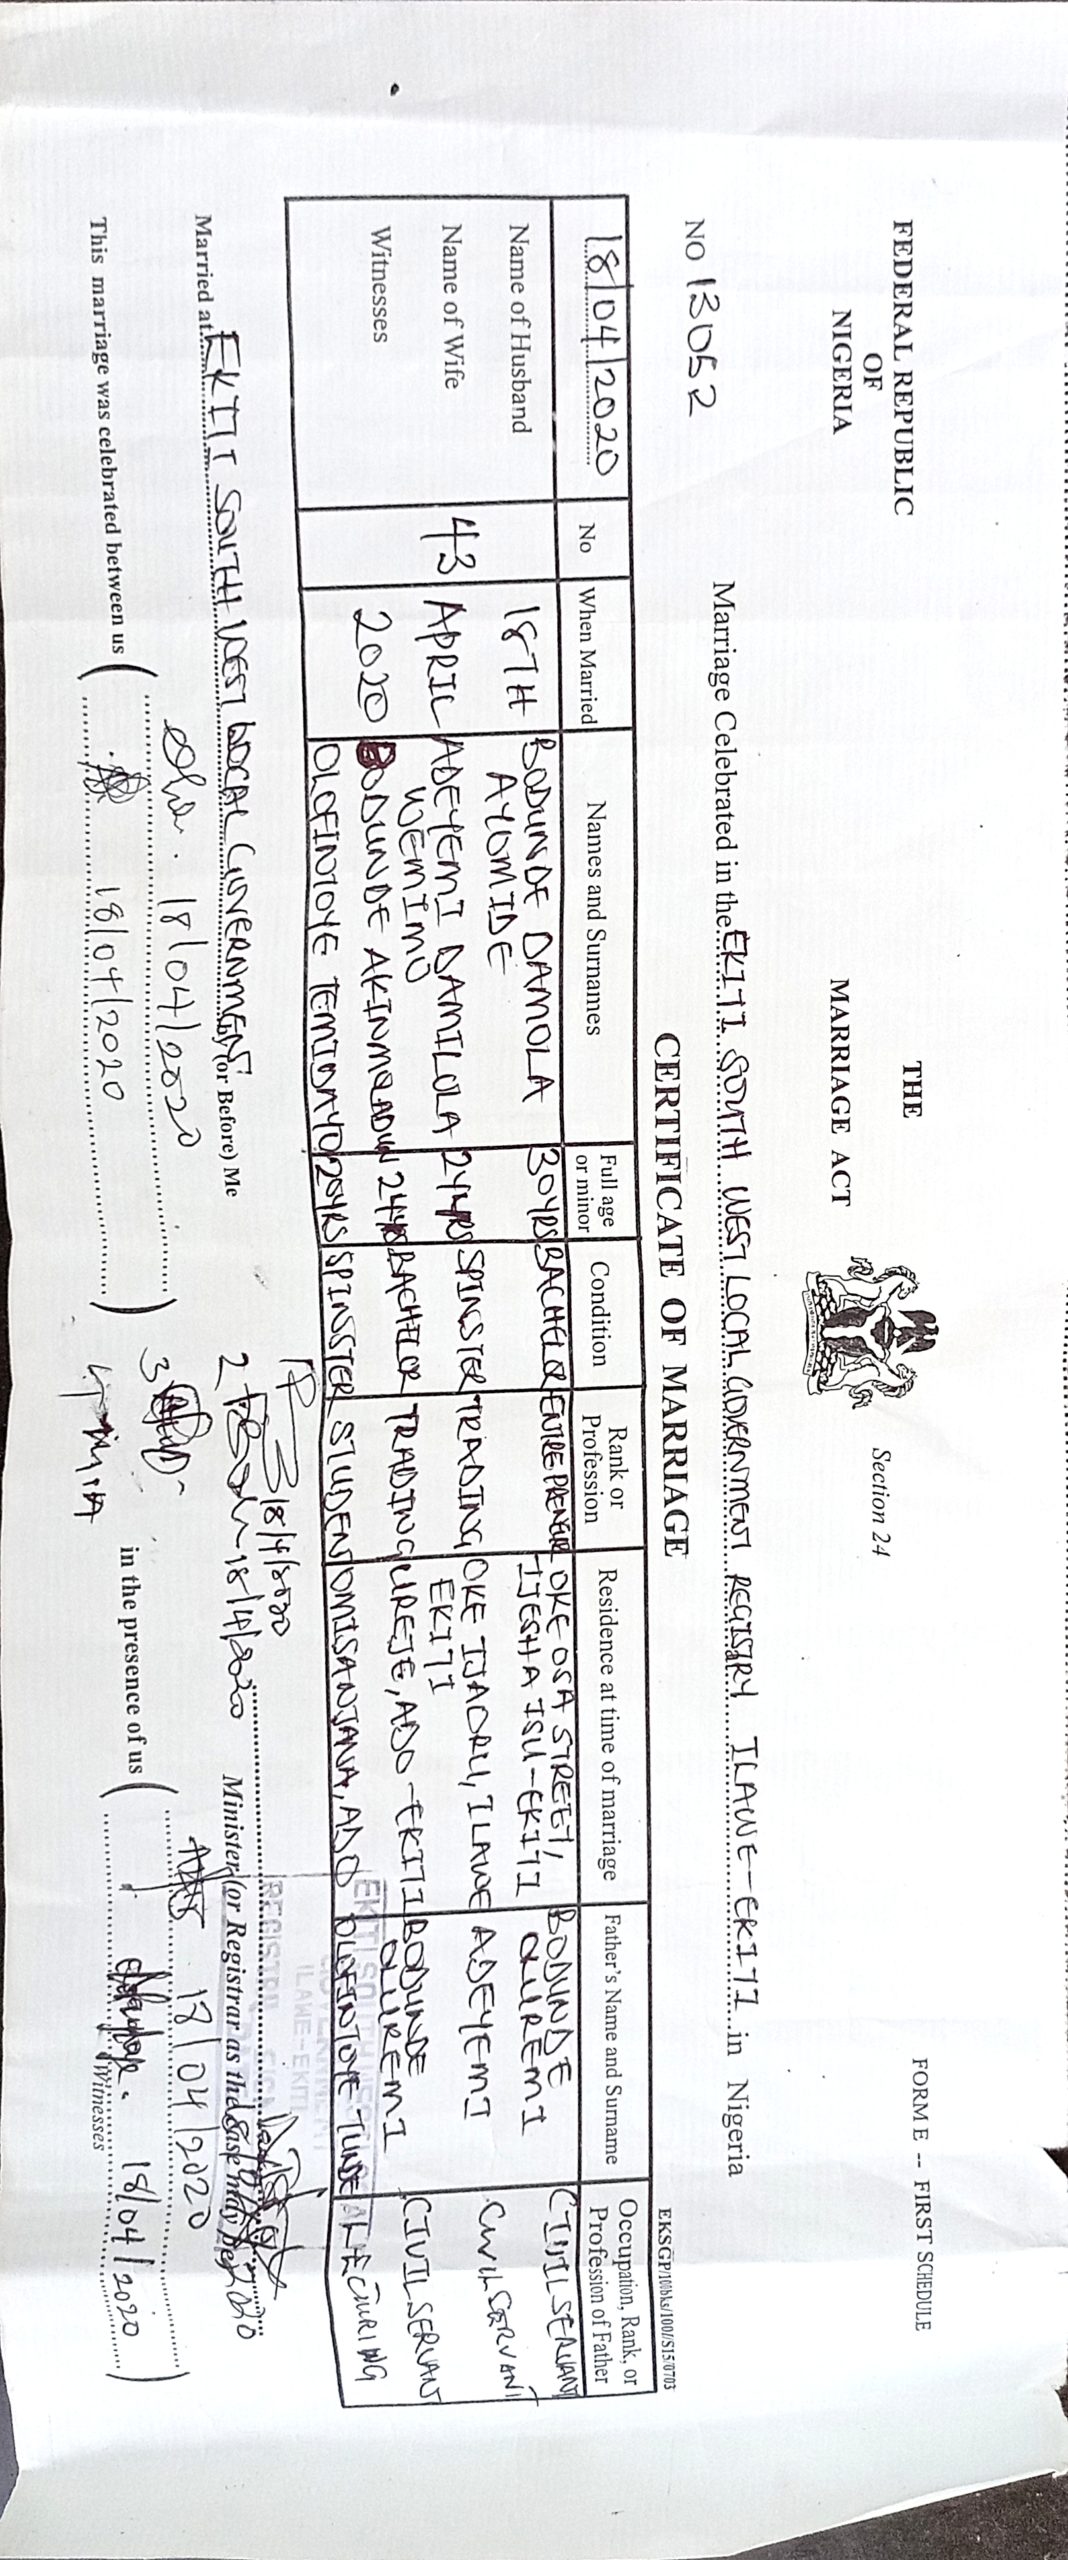 FORM E -- FIRST SCHEDULE
FEDERAL REPUBLIC
OF
NIGERIA
THE
MARRIAGE ACT
Section 24
EKSGP/10bks/100//S15/0703
CERTIFICATE OF MARRIAGE
NO 13052
Marriage Celebrated in the EKITI SOUTH WEST LOCAL GOVERNMENT REGISTRY ILAWE-EKITI in Nigeria
18/04/2020 No When Married Names and Surnames Full age or minor Condition Rank or Profession Residence at time of marriage Father's Name and Surname Occupation, Rank, or Profession of Father
Name of Husband 18TH BODUNDE DAMOLA AYOMIDE 30YRS BACHELOR ENTREPRENEUR OKE OSA STREET, IJESHA ISU-EKITI BODUNDE CIVIL SERVANT
Name of Wife 43 APRIL ADEYEMI DAMILOLA WEMIMO 24YRS SPINSTER TRADING OKE IJAORU, ILAWE EKITI ADEYEMI CIVIL SERVANT
Witnesses 2020 BODUNDE 24YRS BACHELOR TRADING UREJE, ADO-EKITI BODUNDE CIVIL SERVANT
OLOFINTOYE TEMIDAYO 20YRS SPINSTER STUDENT OMISANJANA, ADO OLOFINTOYE TUNDE LECTURING
EKITI SOUTH WEST
ILAWE-EKITI
1 18/4/2020
Married at EKITI SOUTH WEST LOCAL GOVERNMENT by (or Before) Me
2 18/4/2020
Minister (or Registrar as the case may be)
This marriage was celebrated between us
18/04/2020
18/04/2020
3
4
in the presence of us
18/04/2020
18/04/2020
Witnesses